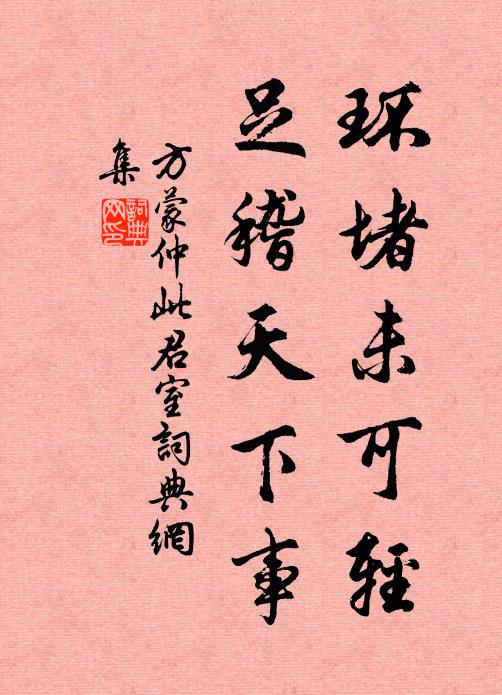 环堵未可輕
足稽天下事
方蒙仲此君室詞典網
集
詞典网印